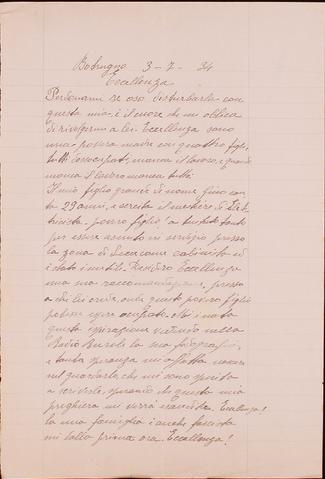 Bobrugno 3-7-34
Eccellenza
Perdonami se oso disturbarla con
questa mia: è il cuore che mi obbliga
di rivolgermi a lei. Eccellenza sono
una povera madre con quattro figli,
tutti disoccupati, manca il lavoro, e quando
manca il lavoro manca tutto.
Il mio figlio grande di nome Gino con-
ta 29 anni, e esercita il mestiere di Elet-
tricista povero figlio à tanto
per essere assunto in servizio presso
la zona di Lecce come ed
è stato inutile. Eccellenza
una sua raccomandazione, presso
a chi lei crede, onde questo povero figlio
potesse essere occupato. Mi è nata
questa ispirazione vedendo nella
Radio Rurale la sua fotografia,
e tanta speranza mi
nel guardarla, che mi sono spinta
a scriverle, sperando che questa mia
preghiera mi verrà esaudita. Eccellenza!
la mia famiglia è anche fascista
mi dalla prima ora Eccellenza!